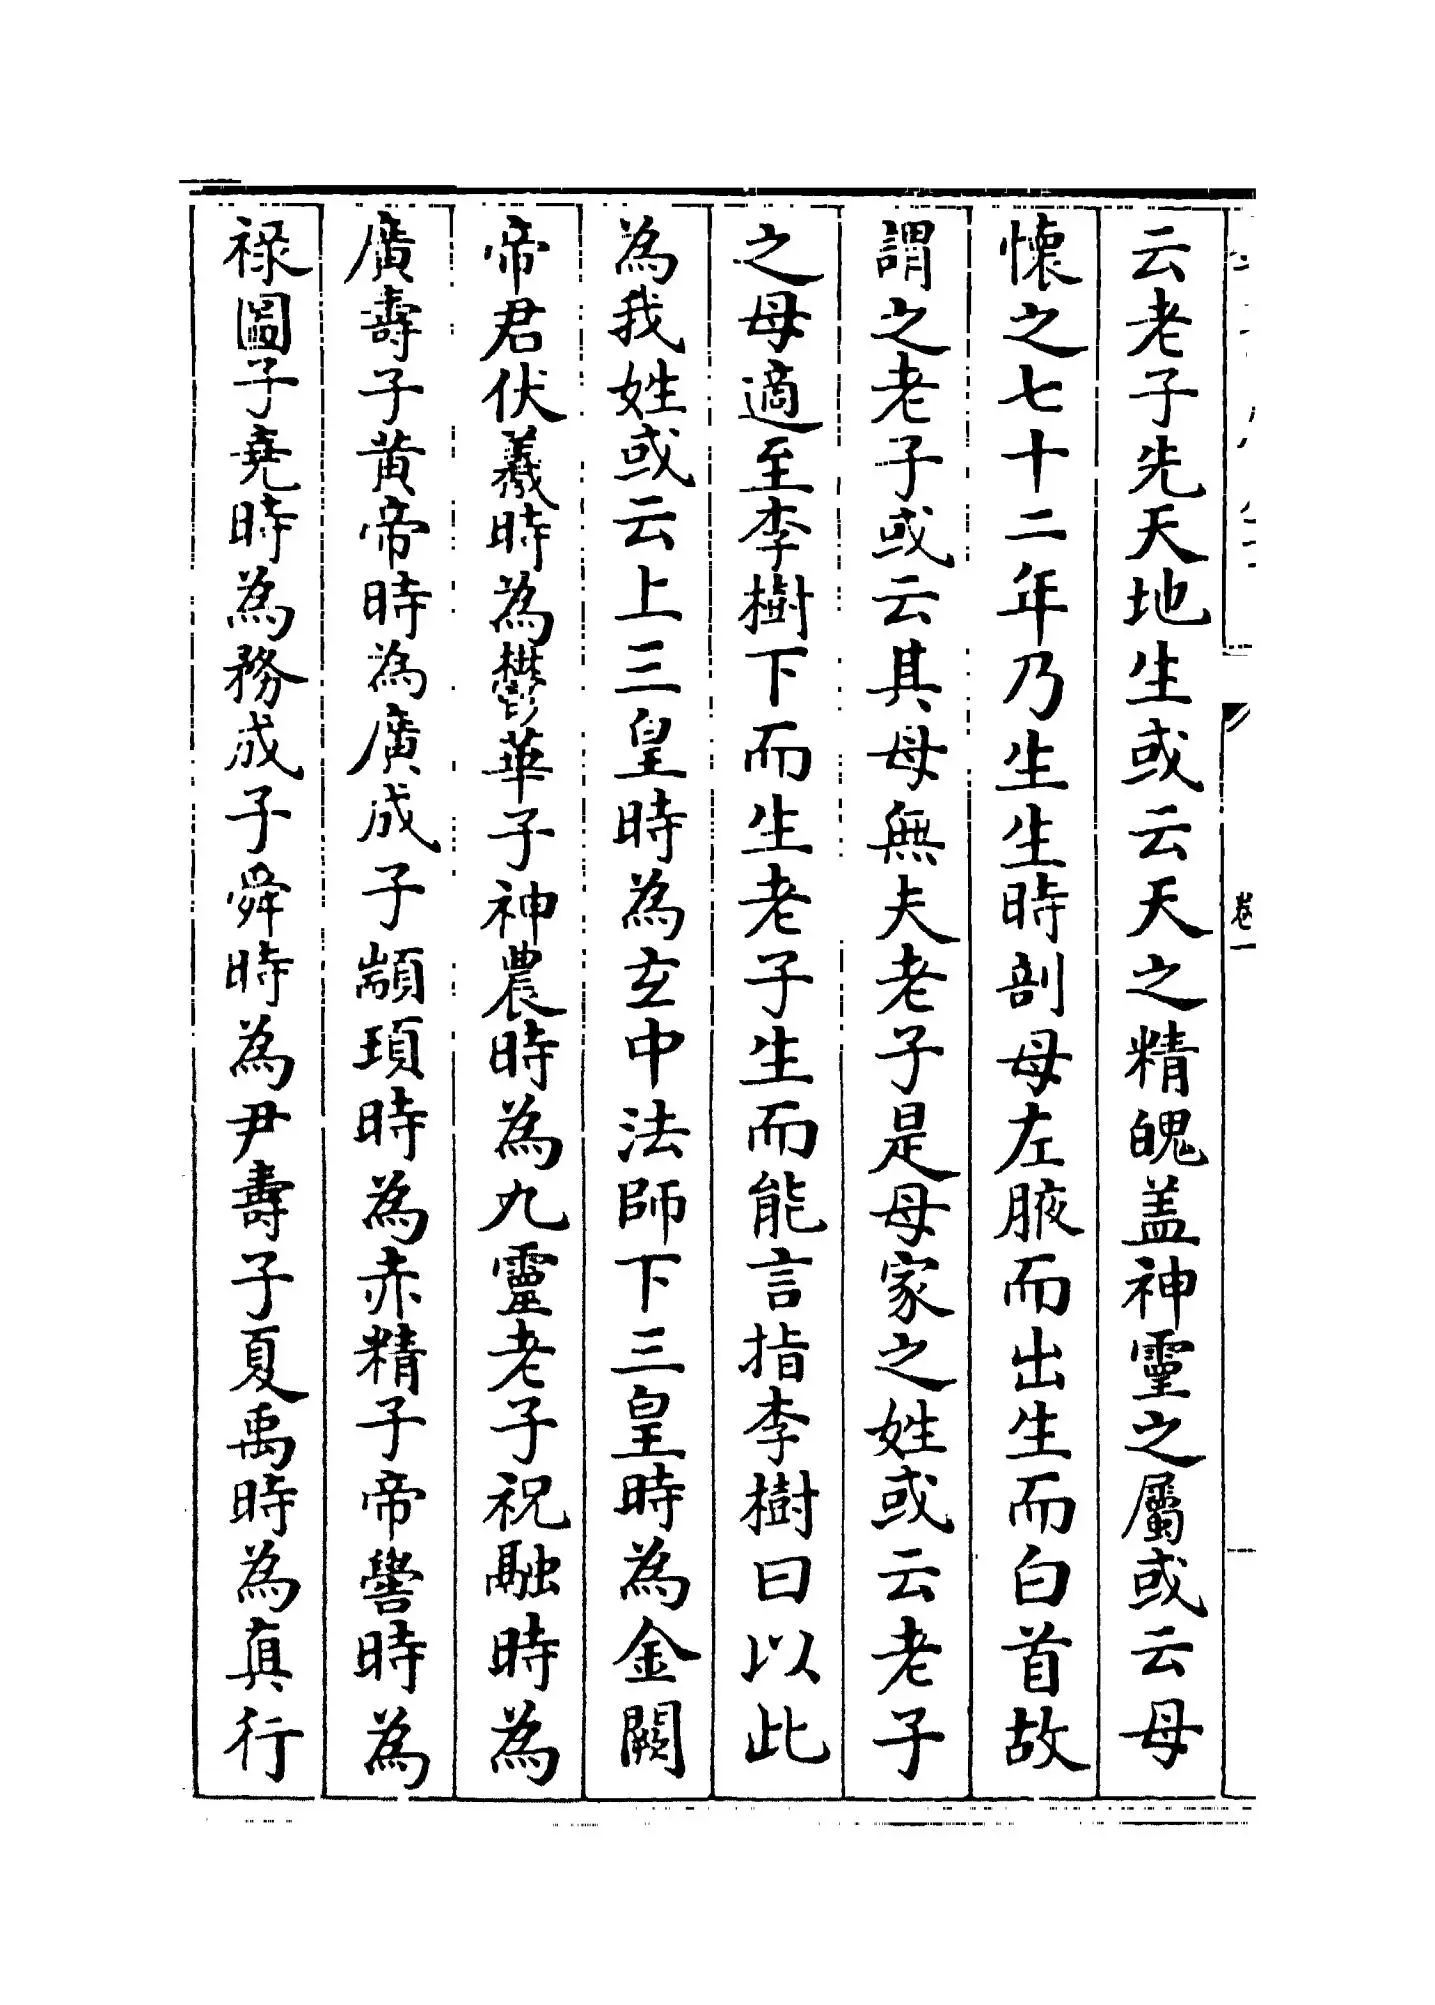 卷一
云老子先天地生或云天之精魄盖神靈之屬或云母
懷之七十二年乃生生時剖母左腋而出生而白首故
謂之老子或云其母無夫老子是母家之姓或云老子
之母適至李樹下而生老子生而能言指李樹曰以此
為我姓或云上三皇時為玄中法師下三皇時為金闕
帝君伏羲時為鬱華子神農時為九靈老子祝融時為
廣壽子黄帝時為廣成子顓頊時為赤精子帝嚳時為
禄圖子堯時為務成子舜時為尹壽子夏禹時為真行